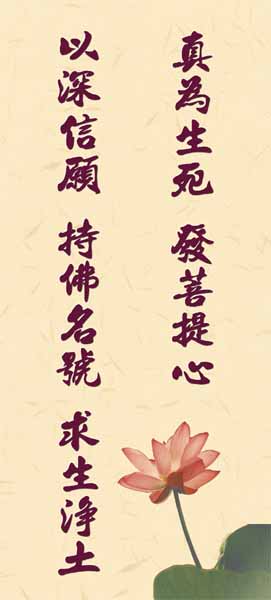 真為生死　發菩提心
以深信願　持佛名號　求生淨土